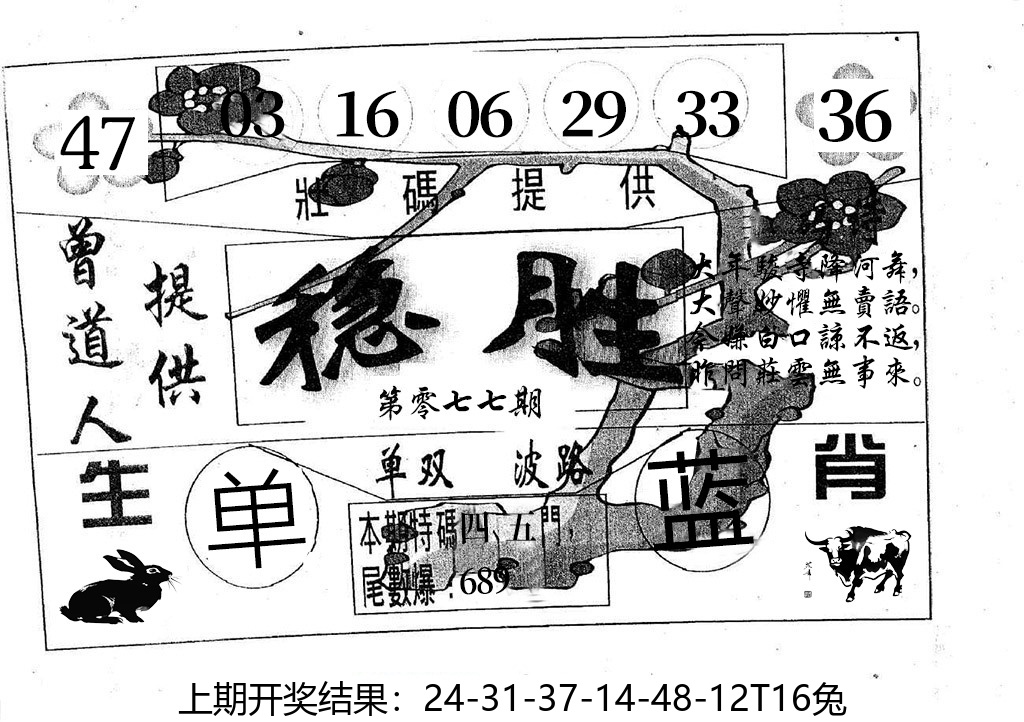 47 03 16 06 29 33 36
莊碼提供
曾道人
提供
稳胜
第零七七期
大年駿等降何舞，
大聲妙懼無賣語。
余嫌白口諒不返，
昨問莊雲無事來。
单双 波路
生 单 蓝 肖
本期特碼四、五門，
尾數爆：689
上期开奖结果：24-31-37-14-48-12T16兔